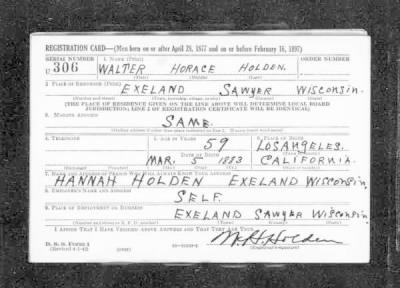 REGISTRATION CARD—(Men born on or after April 28, 1877 and on or before February 16, 1897)
SERIAL NUMBER 1. NAME (Print) ORDER NUMBER
U 306 WALTER HORACE HOLDEN.
(First) (Middle) (Last)
2. PLACE OF RESIDENCE (Print)
EXELAND SAWYER WISCONSIN.
(Number and street) (Town, township, village, or city) (County) (State)
[THE PLACE OF RESIDENCE GIVEN ON THE LINE ABOVE WILL DETERMINE LOCAL BOARD
JURISDICTION; LINE 2 OF REGISTRATION CERTIFICATE WILL BE IDENTICAL]
3. MAILING ADDRESS
SAME.
4. TELEPHONE 5. AGE IN YEARS 6. PLACE OF BIRTH
59 LOS ANGELES.
DATE OF BIRTH
MAR. 5 1883 CALIFORNIA.
7. NAME AND ADDRESS OF PERSON WHO WILL ALWAYS KNOW YOUR ADDRESS
HANNAH HOLDEN EXELAND WISCONSIN.
8. EMPLOYER'S NAME AND ADDRESS
SELF.
9. PLACE OF EMPLOYMENT OR BUSINESS
EXELAND SAWYER WISCONSIN.
(Number and street or R. F. D. number) (Town) (County) (State)
I AFFIRM THAT I HAVE VERIFIED ABOVE ANSWERS AND THAT THEY ARE TRUE.
D. S. S. Form 1
(Revised 4-1-42) W. H. Holden
(Registrant's signature)